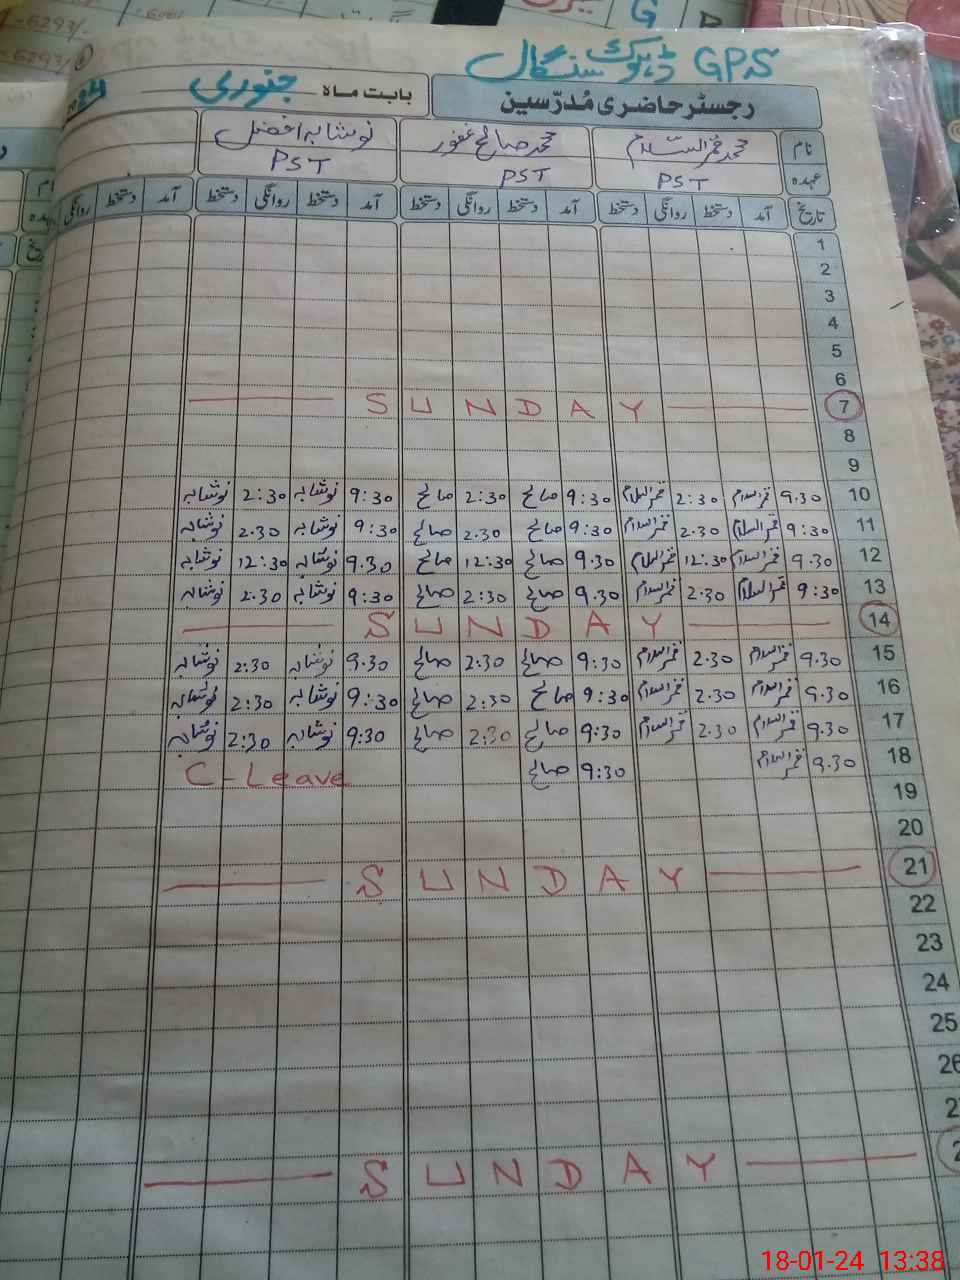 GPS ڈہوک سنگال
رجسٹر حاضری مُدرّسین
بابت ماہ جنوری 2024
نام محمد قمر السلام محمد صالح غفور نوشابہ افضل
عہدہ PST PST PST
تاریخ آمد دستخط روانگی دستخط آمد دستخط روانگی دستخط آمد دستخط روانگی دستخط آمد دستخط روانگی
1
2
3
4
5
6
7 SUNDAY
8
9
10 9.30 قمر السلام 2:30 قمر السلام 9:30 صالح 2:30 صالح 9:30 نوشابہ 2:30 نوشابہ
11 9:30 قمر السلام 2.30 قمر السلام 9:30 صالح 2.30 صالح 9:30 نوشابہ 2.30 نوشابہ
12 9.30 قمر السلام 12:30 قمر السلام 9.30 صالح 12:30 صالح 9.30 نوشابہ 12:30 نوشابہ
13 9:30 قمر السلام 2.30 قمر السلام 9.30 صالح 2:30 صالح 9:30 نوشابہ 2.30 نوشابہ
14 SUNDAY
15 9.30 قمر السلام 2.30 قمر السلام 9:30 صالح 2:30 صالح 9.30 نوشابہ 2:30 نوشابہ
16 9.30 قمر السلام 2.30 قمر السلام 9:30 صالح 2:30 صالح 9:30 نوشابہ 2:30 نوشابہ
17 9.30 قمر السلام 2.30 قمر السلام 9:30 صالح 2:30 صالح 9:30 نوشابہ 2:30 نوشابہ
18 9.30 قمر السلام 9:30 صالح C-Leave
19
20
21 SUNDAY
22
23
24
25
26
SUNDAY
18-01-24 13:38